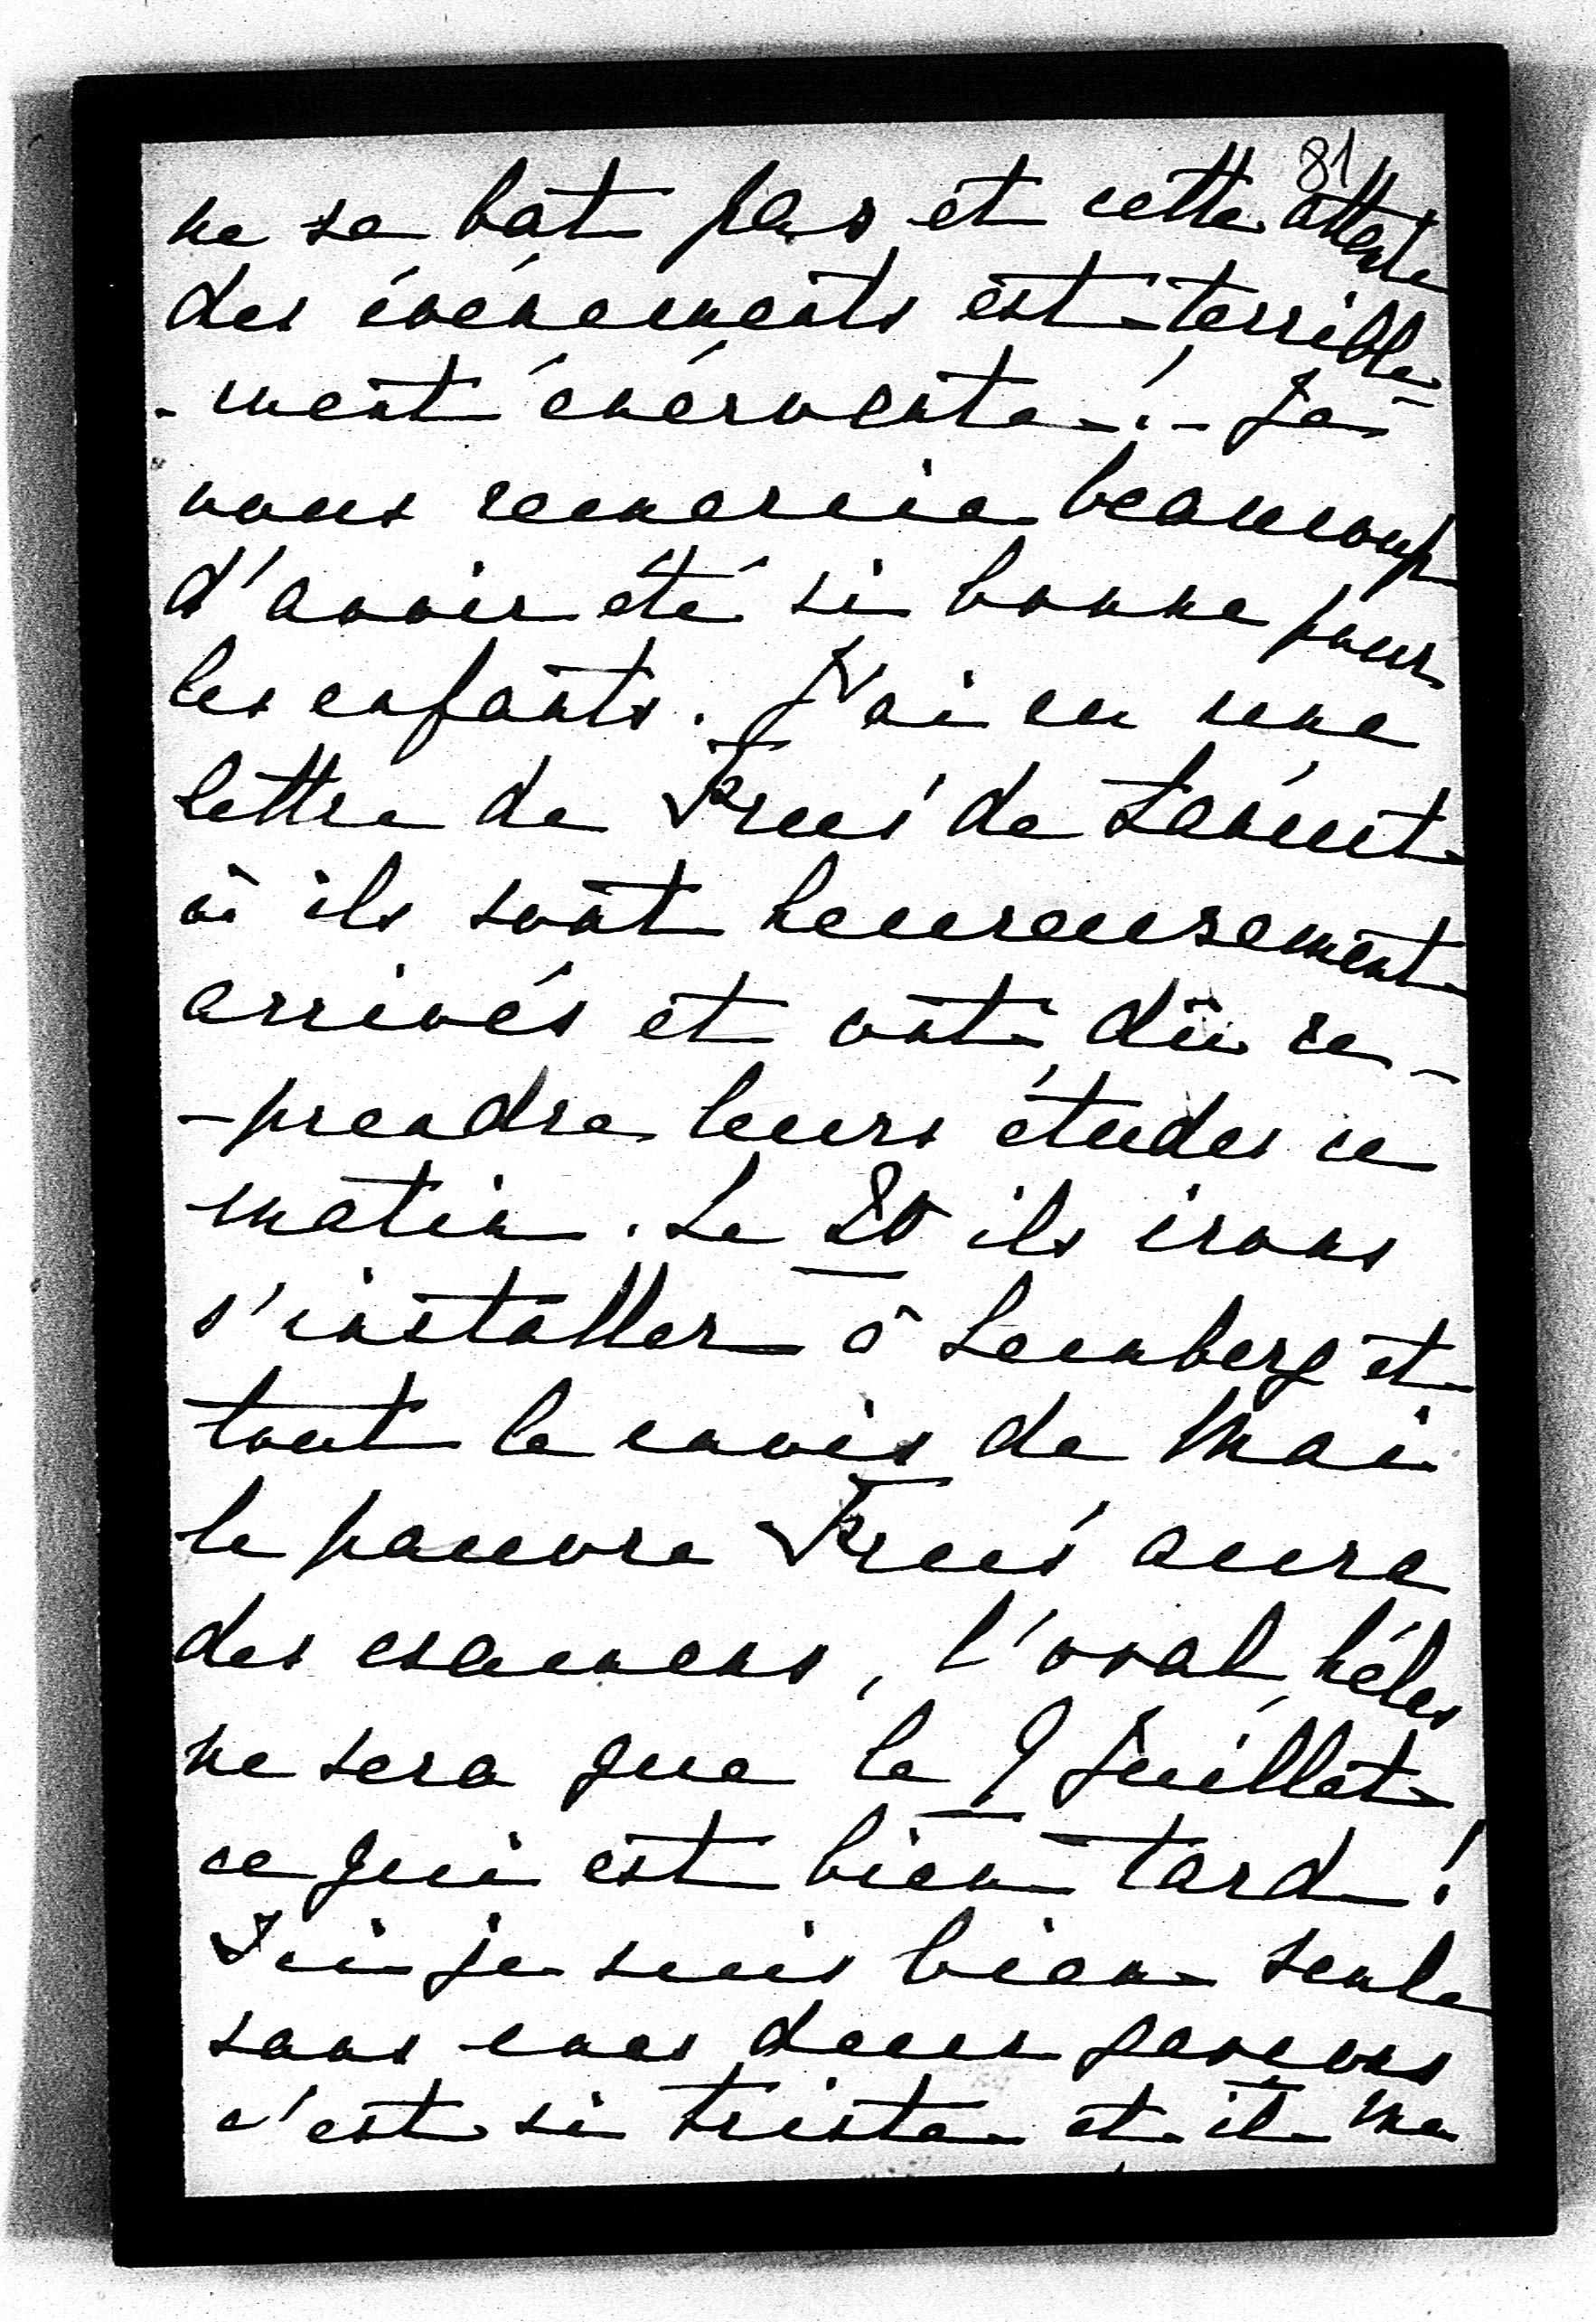 81
ne se bat pas et cette attente
des événements est terrible-
-ment énervante! - Je
vous remercie beaucoup
d'avoir été si bonne pour
les enfants. J'ai eu une
lettre de de
où ils sont heureusement
arrivés et ont dû re-
-prendre leurs études ce
matin. Le 20 ils irons
s'installer à Lemberg et
tout le mois de Mai
le pauvre aura
des examens, l'oral, hélas
ne sera que le 9 Juillet
ce qui est bien tard!
Ici je suis bien seule
sans mes deux garçons
c'est si triste et il me